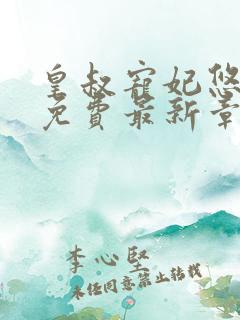 皇叔寵妃悠
免費最新章
李心堅
未經同意禁止轉載